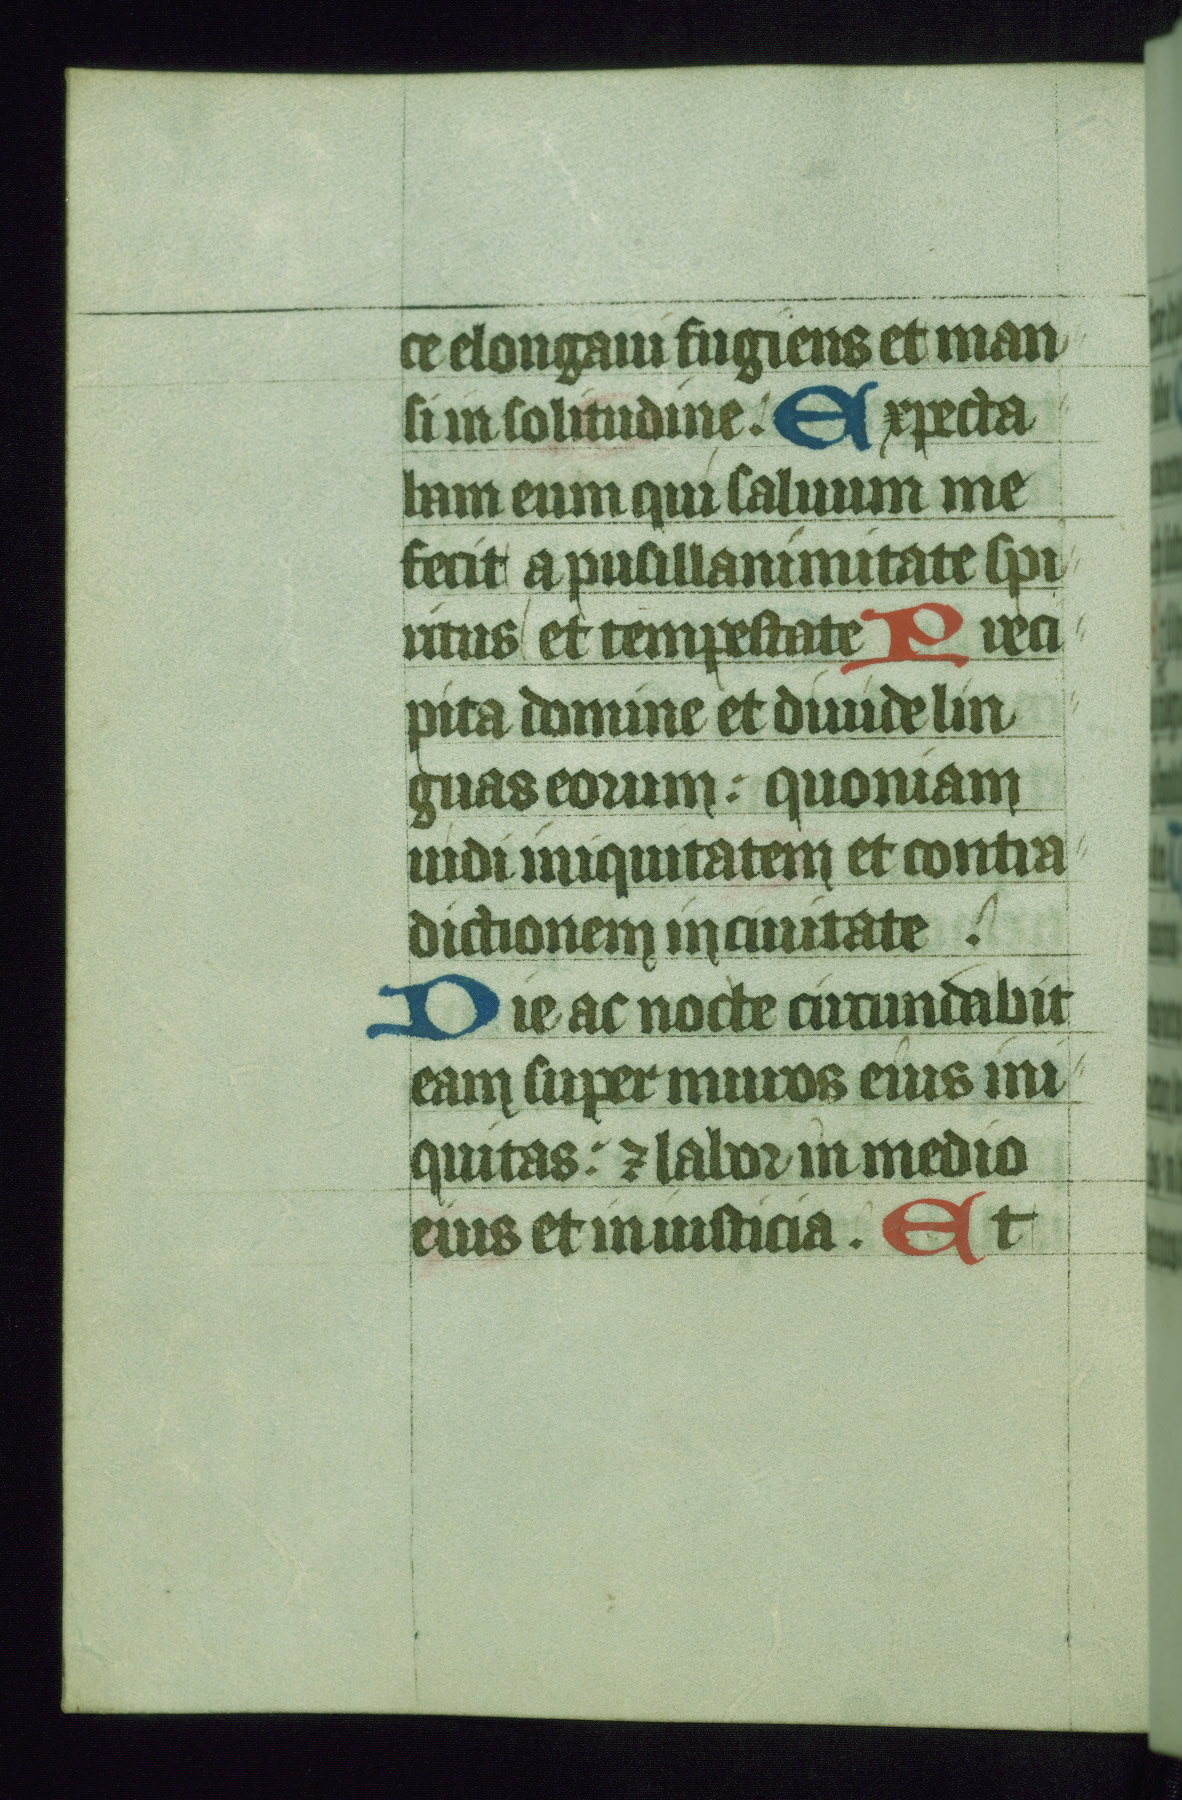 ce elongaui fugiens et man
si in solitudine. Expecta
bam eum qui saluum me
fecit a pusillanimitate spi
ritus et tempestate Preci
pita domine et diuide lin
guas eorum: quoniam
uidi iniquitatem et contra
dictionem in ciuitate.
Die ac nocte circundabit
eam super muros eius ini
quitas: ⁊ labor in medio
eius et iniusticia. Et